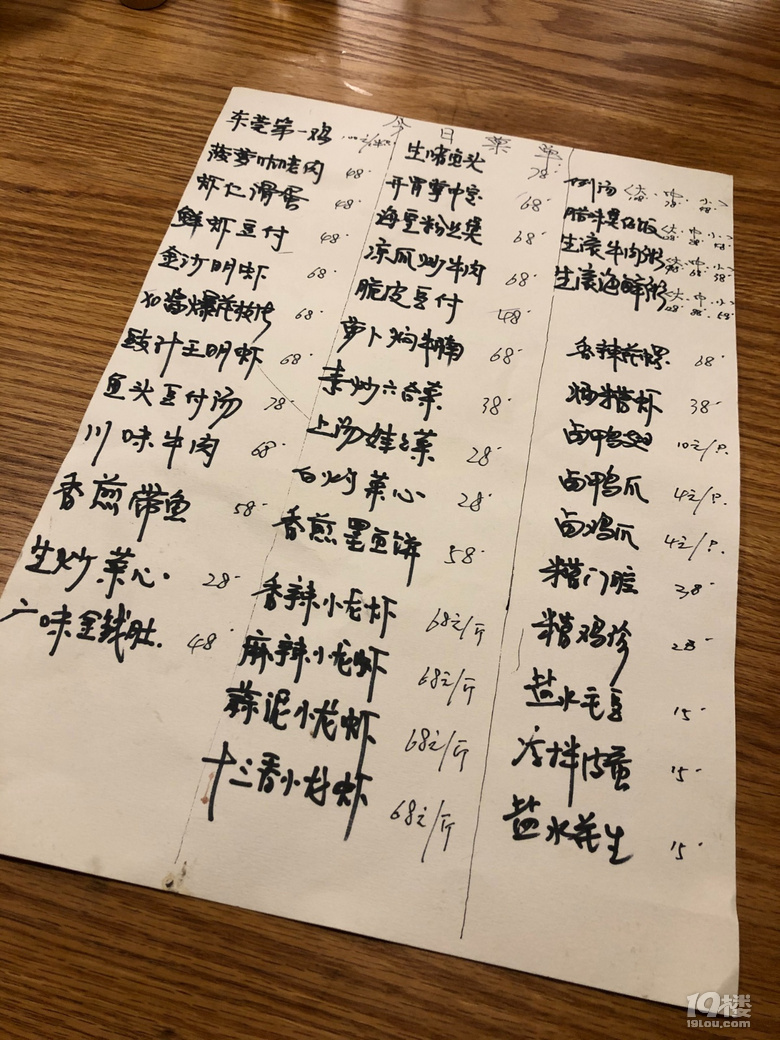 今日菜单
东莞第一鸡
菠萝咕咾肉 68
虾仁滑蛋 48
鲜虾豆付 48
金沙明虾 68
XO酱爆花枝片 68
豉汁王明虾 68
鱼头豆付汤 78
川味牛肉 68
香煎带鱼 58
生炒菜心 28
广味金钱肚 48
生啫鱼头 78
开胃掌中宝 68
海皇粉丝煲 68
凉瓜炒牛肉 68
脆皮豆付 48
萝卜焖牛腩 68
素炒六合菜 38
上汤娃娃菜 28
白灼菜心 28
香煎墨鱼饼 58
香辣小龙虾 68元/斤
麻辣小龙虾 68元/斤
蒜泥小龙虾 68元/斤
十三香小龙虾 68元/斤
例汤 大 中 小
腊味煲仔饭 大 中 小
生滚牛肉粥 大 中 小
生滚海鲜粥 大 中 小
香辣花螺 68
糟虾 38
卤鸭翅 10元/只
卤鸭爪 4元/只
卤鸡爪 4元/只
糟门腔 38
糟鸡珍 28
盐水毛豆 15
冷拌皮蛋 15
盐水花生 15
19楼
19lou.com